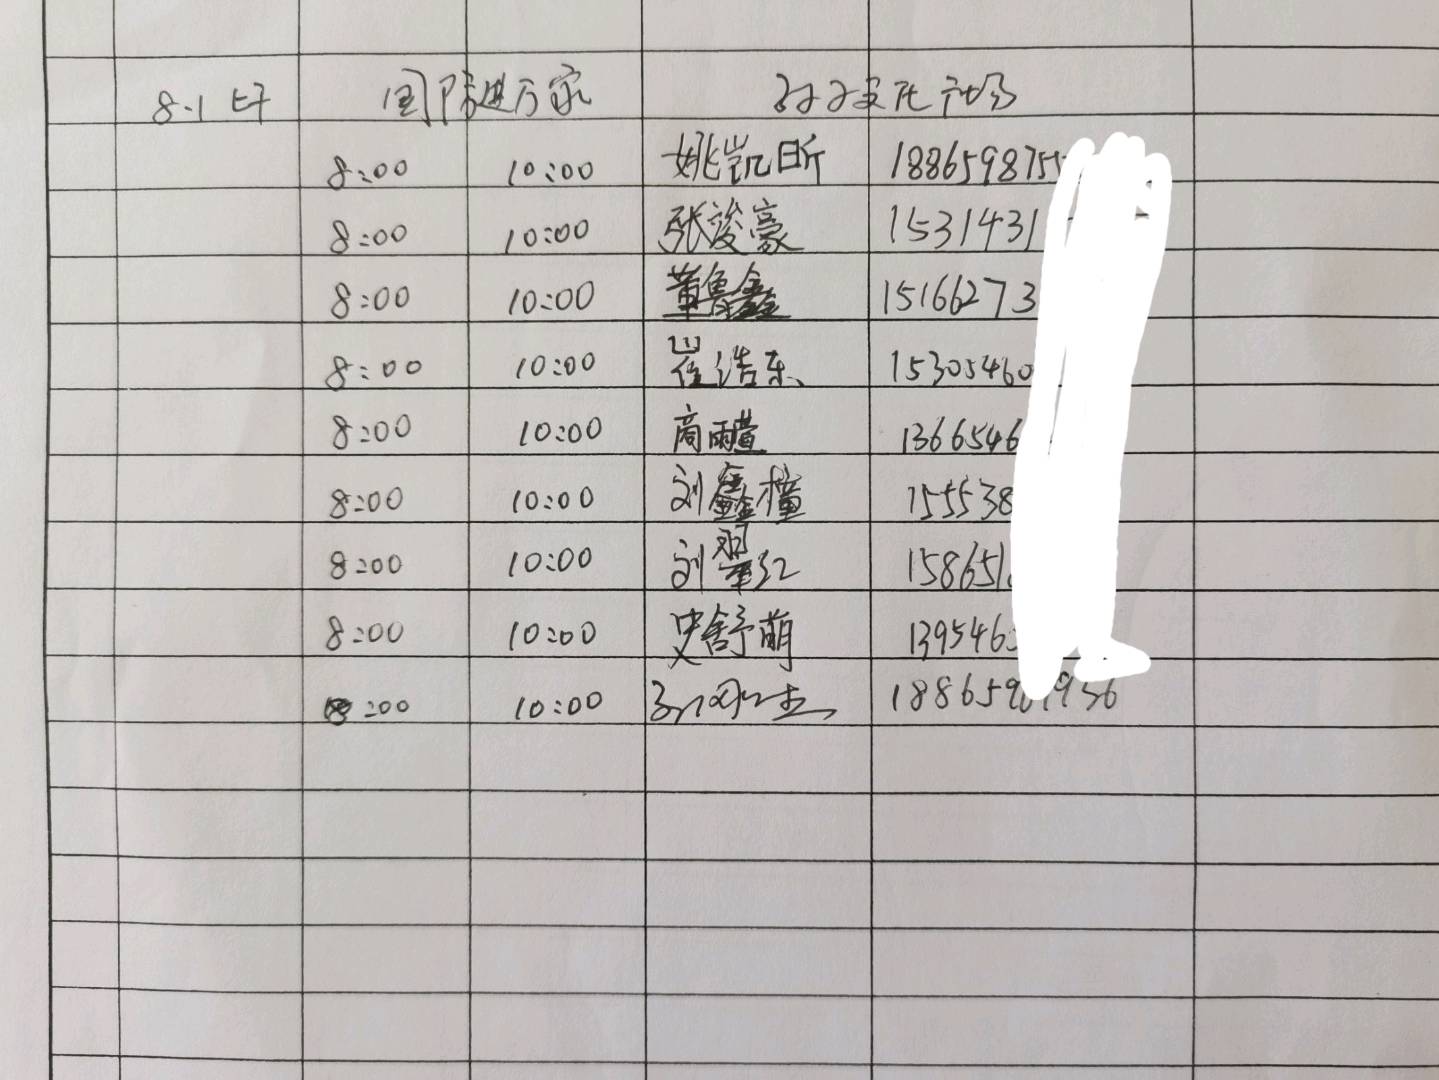 8.1 上午 国防进万家
8:00 10:00 姚凯昕 188659875
8:00 10:00 张浚豪 1531431
8:00 10:00 董鲁鑫 15166273
8:00 10:00 崔浩东 15305460
8:00 10:00 商雨萱 1366546
8:00 10:00 刘鑫橦 155538
8:00 10:00 刘翠红 158651
8:00 10:00 史舒萌 1395463
8:00 10:00 188659